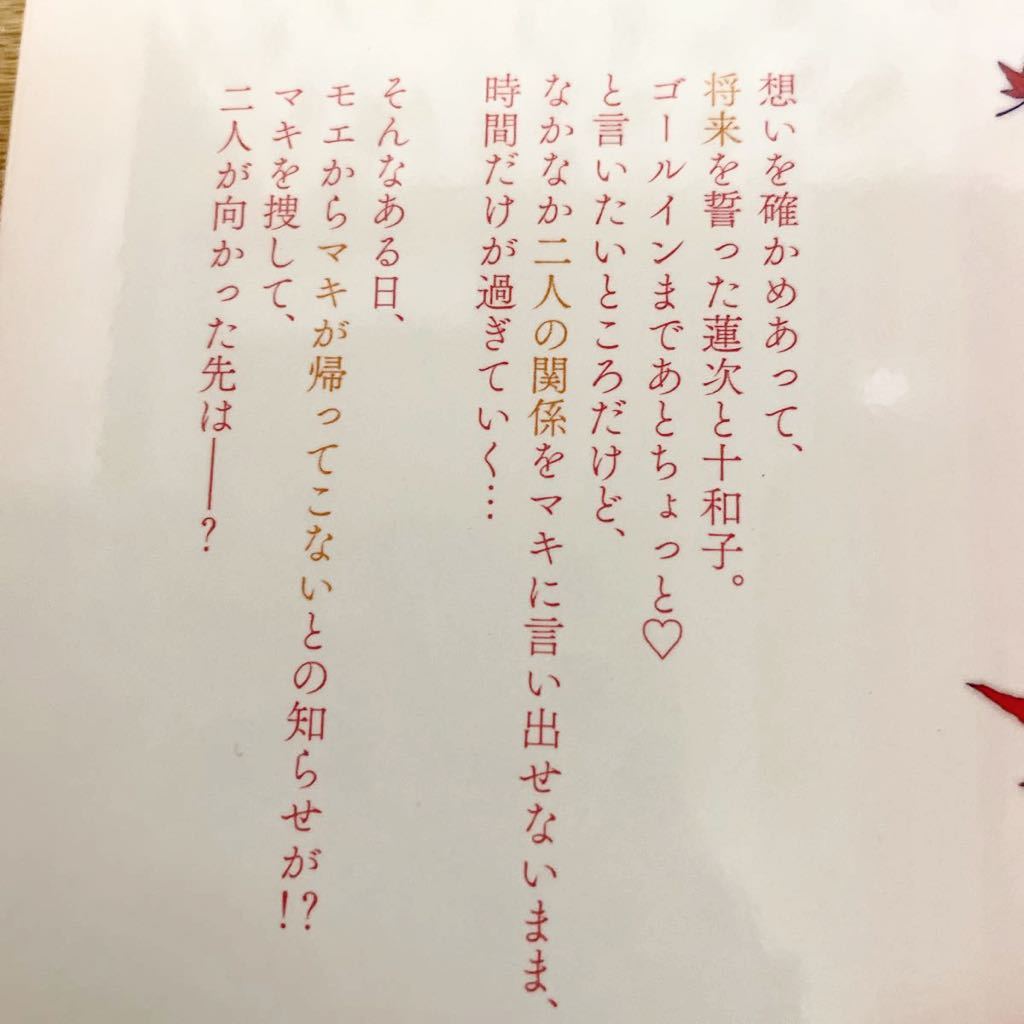 想いを確かめあって、
将来を誓った蓮次と十和子。
ゴールインまであとちょっと♡
と言いたいところだけど、
なかなか二人の関係をマキに言い出せないまま、
時間だけが過ぎていく…
そんなある日、
モエからマキが帰ってこないとの知らせが!?
マキを捜して、
二人が向かった先は――?